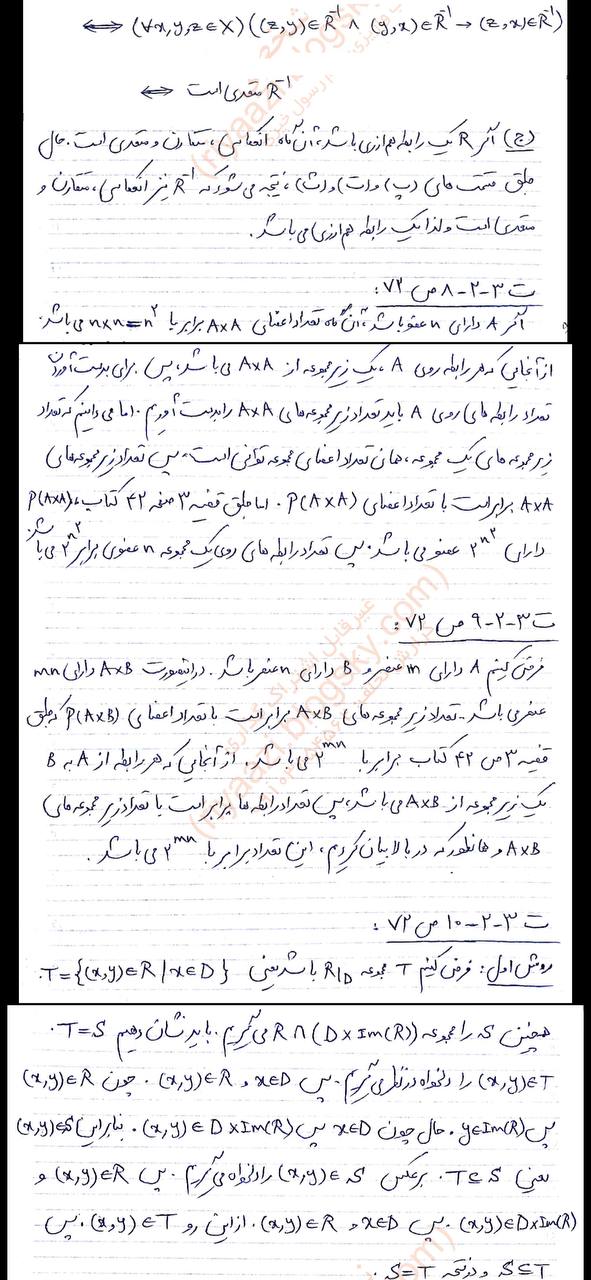 ⟺ (∀x,y,z∈X)((z,y)∈R⁻¹ ∧ (y,x)∈R⁻¹ → (z,x)∈R⁻¹)
⟺ R⁻¹ متعدی است
(ج) اگر R یک رابطه هم ارزی باشد، آن گاه انعکاسی، متقارن و متعدی است. حال
طبق قسمت های (پ) و (ت) و (ث)، نتیجه می شود که R⁻¹ نیز انعکاسی، متقارن و
متعدی است و لذا یک رابطه هم ارزی می باشد.
ت ۳-۲-۸ ص ۷۲:
اگر A دارای n عضو باشد، آن گاه تعداد اعضای A×A برابر با n×n=n² می باشد.
از آنجایی که هر رابطه روی A، یک زیرمجموعه از A×A می باشد، پس برای بدست آوردن
تعداد رابطه های روی A باید تعداد زیرمجموعه های A×A را بدست آوریم. اما می دانیم که تعداد
زیرمجموعه های یک مجموعه، همان تعداد اعضای مجموعه توانی است. پس تعداد زیرمجموعه های
A×A برابر است با تعداد اعضای P(A×A). اما طبق قضیه ۳ صفحه ۴۲ کتاب، P(A×A)
دارای ۲^n² عضو می باشد. پس تعداد رابطه های روی یک مجموعه n عضوی برابر ۲^n² می باشد.
ت ۳-۲-۹ ص ۷۲:
فرض کنیم A دارای m عنصر و B دارای n عنصر باشد. در اینصورت A×B دارای mn
عنصر می باشد. تعداد زیرمجموعه های A×B برابر است با تعداد اعضای P(A×B) که طبق
قضیه ۳ ص ۴۲ کتاب برابر با ۲^mn می باشد. از آنجایی که هر رابطه از A به B
یک زیرمجموعه از A×B می باشد، پس تعداد رابطه ها برابر است با تعداد زیرمجموعه های
A×B و همانطور که در بالا بیان کردیم، این تعداد برابر با ۲^mn می باشد.
ت ۳-۲-۱۰ ص ۷۲:
روش اول: فرض کنیم T مجموعه R|D باشد یعنی T={(x,y)∈R | x∈D}.
همچنین S را مجموعه R∩(D×Im(R)) می گیریم. باید نشان دهیم T=S.
(x,y)∈T را دلخواه در نظر می گیریم. پس x∈D و (x,y)∈R. چون (x,y)∈R
پس y∈Im(R). حال چون x∈D پس (x,y)∈D×Im(R). بنابراین (x,y)∈S
یعنی T⊆S. برعکس (x,y)∈S را دلخواه می گیریم. پس (x,y)∈R و
(x,y)∈D×Im(R). پس x∈D و (x,y)∈R. از این رو (x,y)∈T. پس
S⊆T و در نتیجه S=T.